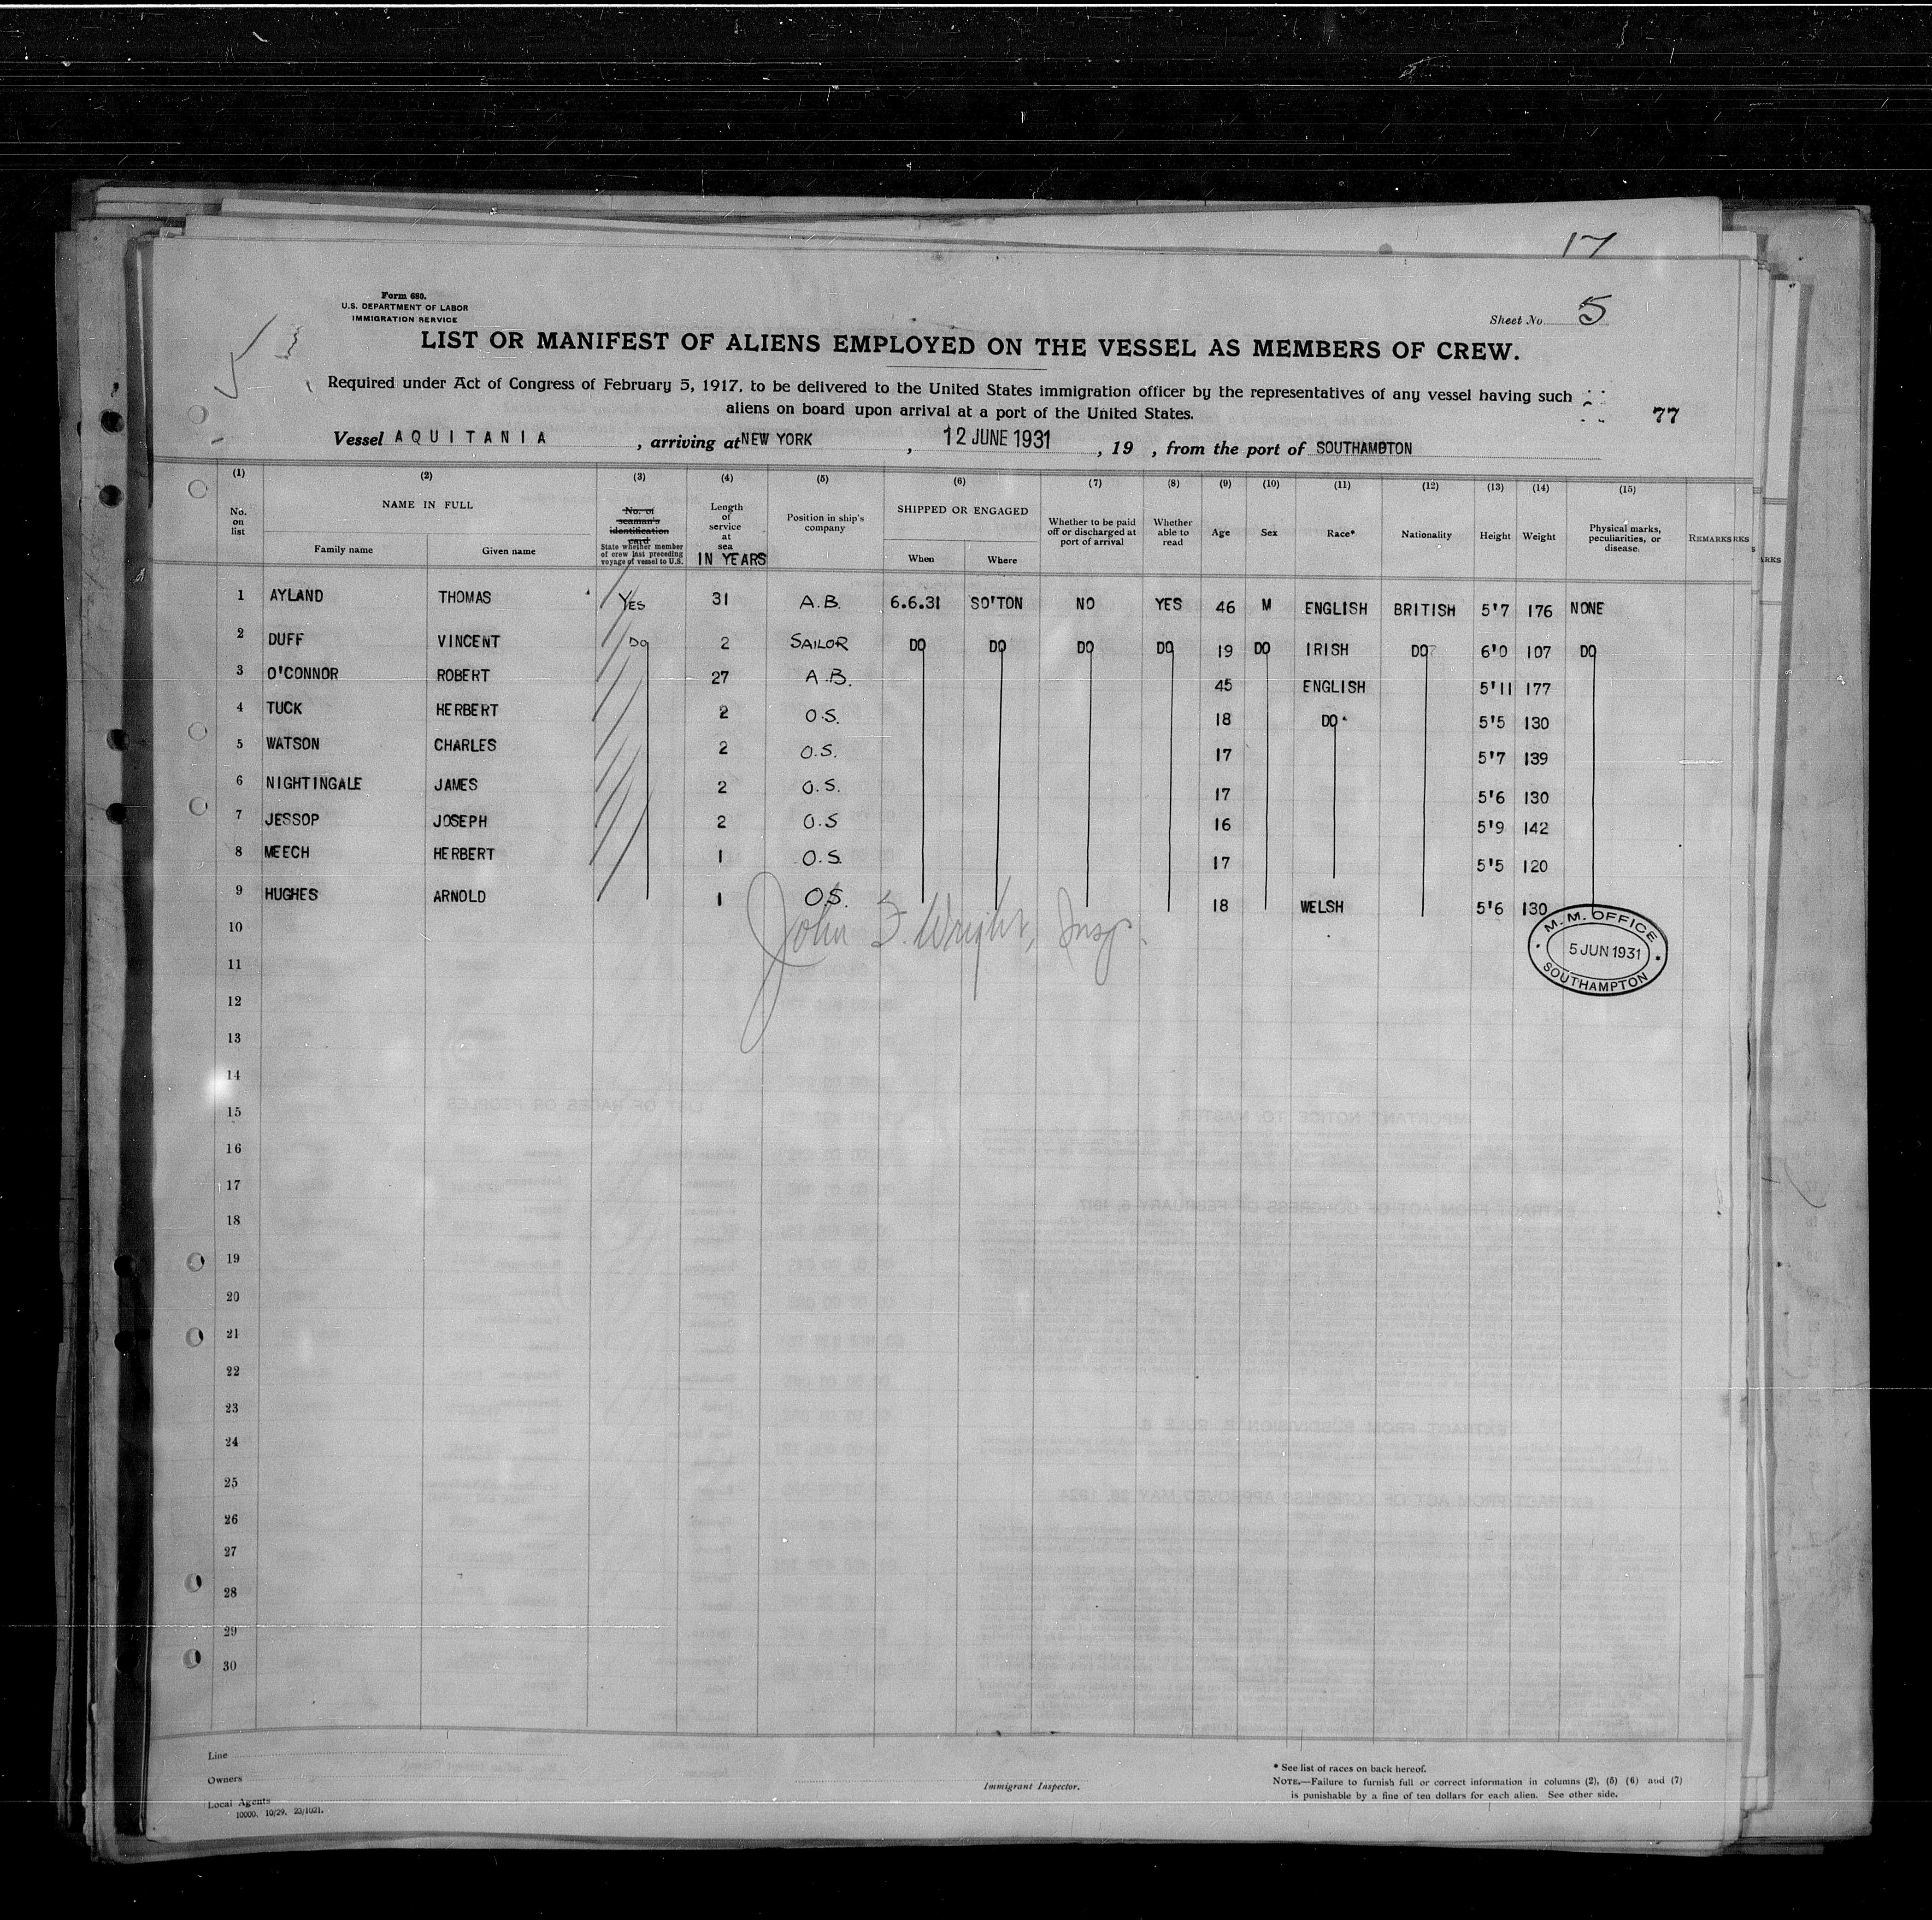 17
Form 680.
U.S. DEPARTMENT OF LABOR
IMMIGRATION SERVICE
Sheet No. 5
LIST OR MANIFEST OF ALIENS EMPLOYED ON THE VESSEL AS MEMBERS OF CREW.
Required under Act of Congress of February 5, 1917, to be delivered to the United States immigration officer by the representatives of any vessel having such
aliens on board upon arrival at a port of the United States.
77
Vessel AQUITANIA, arriving at NEW YORK, 12 JUNE 1931, 19 , from the port of SOUTHAMPTON
(1) (2) (3) (4) (5) (6) (7) (8) (9) (10) (11) (12) (13) (14) (15)
No. on list
NAME IN FULL
Family name Given name
No. of seaman's identification card
State whether member of crew last preceding voyage of vessel to U.S.
Length of service at sea IN YEARS
Position in ship's company
SHIPPED OR ENGAGED
When Where
Whether to be paid off or discharged at port of arrival
Whether able to read
Age Sex Race* Nationality Height Weight
Physical marks, peculiarities, or disease
REMARKS
1 AYLAND THOMAS YES 31 A.B. 6.6.31 SO'TON NO YES 46 M ENGLISH BRITISH 5'7 176 NONE
2 DUFF VINCENT DO 2 SAILOR DO DO DO DO 19 DO IRISH DO 6'0 107 DO
3 O'CONNOR ROBERT 27 A.B. 45 ENGLISH 5'11 177
4 TUCK HERBERT 2 O.S. 18 DO 5'5 130
5 WATSON CHARLES 2 O.S. 17 5'7 139
6 NIGHTINGALE JAMES 2 O.S. 17 5'6 130
7 JESSOP JOSEPH 2 O.S 16 5'9 142
8 MEECH HERBERT 1 O.S. 17 5'5 120
9 HUGHES ARNOLD 1 O.S. 18 WELSH 5'6 130
John F. Wright, Insp.
M.M. OFFICE
5 JUN 1931
SOUTHAMPTON
10
11
12
13
14
15
16
17
18
19
20
21
22
23
24
25
26
27
28
29
30
Line
Owners
Local Agents
10000. 10/29. 23/1021.
Immigrant Inspector.
* See list of races on back hereof.
NOTE.—Failure to furnish full or correct information in columns (2), (5) (6) and (7)
is punishable by a fine of ten dollars for each alien. See other side.